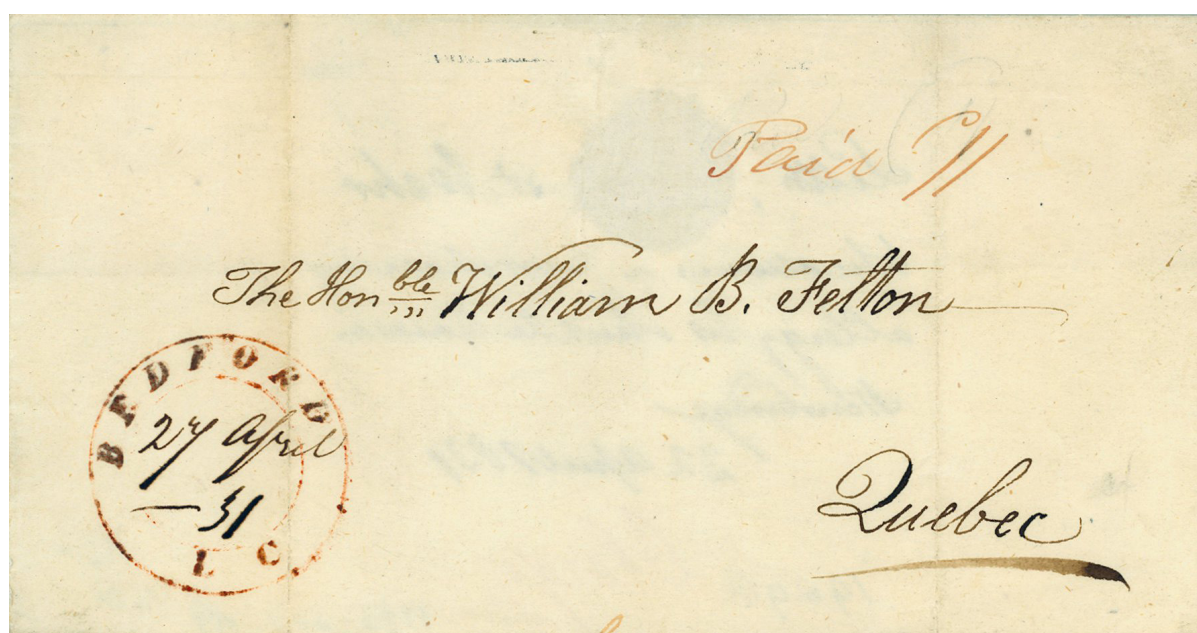 Paid /11
The Honble William B. Felton
Quebec
BEDFORD
27 April
31
L C